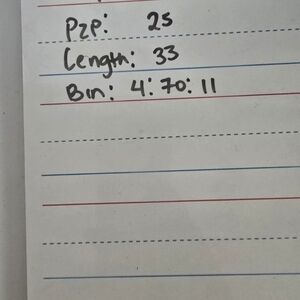 P2P: 25
Length: 33
Bin: 4:70:11